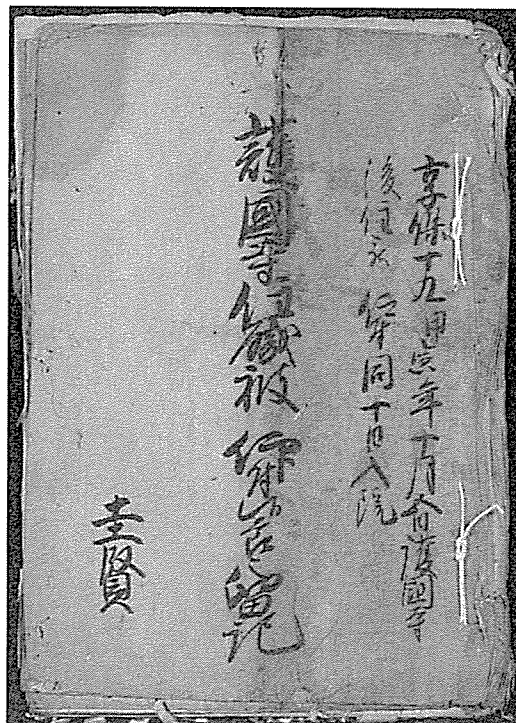 享保十九甲寅年十月日護國寺
後住被 仰付同十日入院
護國寺住職被 仰留記
圭賢